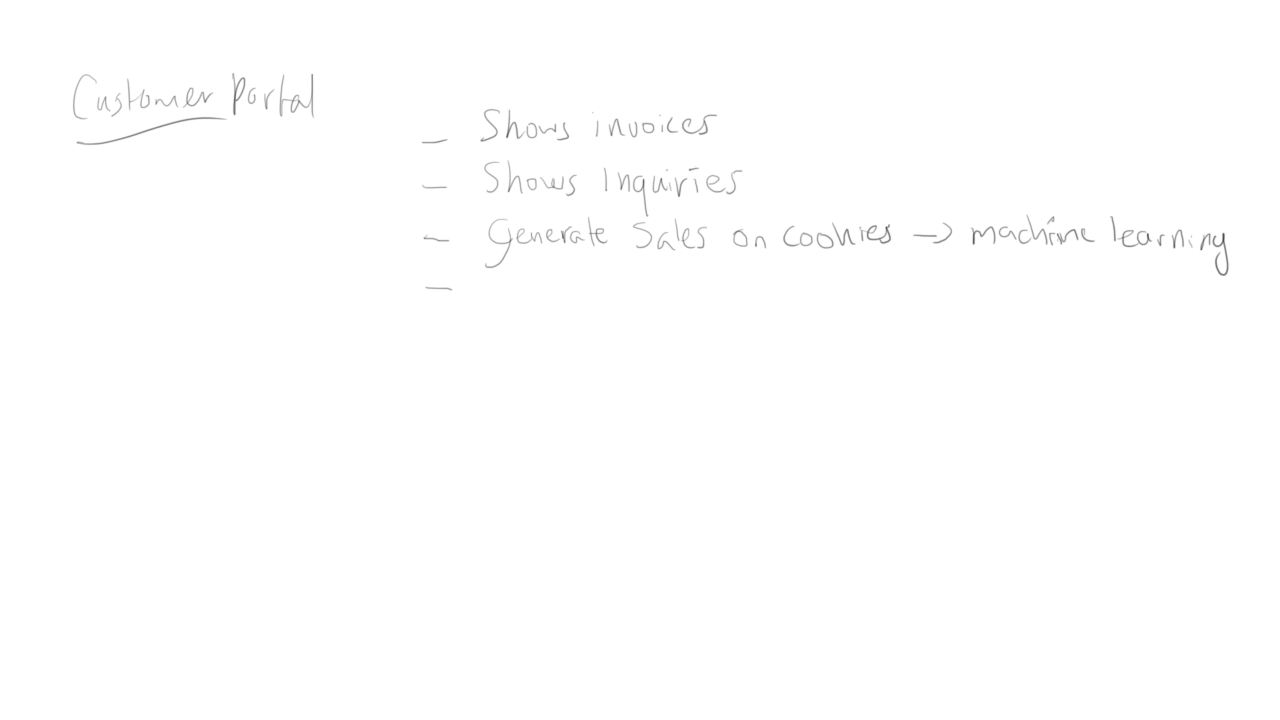 Customer Portal
- Shows invoices
- Shows Inquiries
- Generate Sales on cookies -> machine learning
-